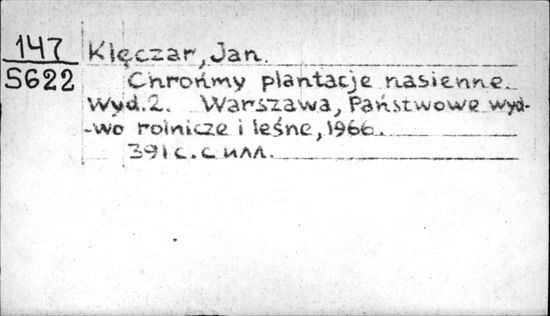 147 Klęczar, Jan.
5622 Chrońmy plantacje nasienne.
Wyd. 2. Warszawa, Państwowe wyd-
-wo rolnicze i leśne, 1966.
391 с. с илл.